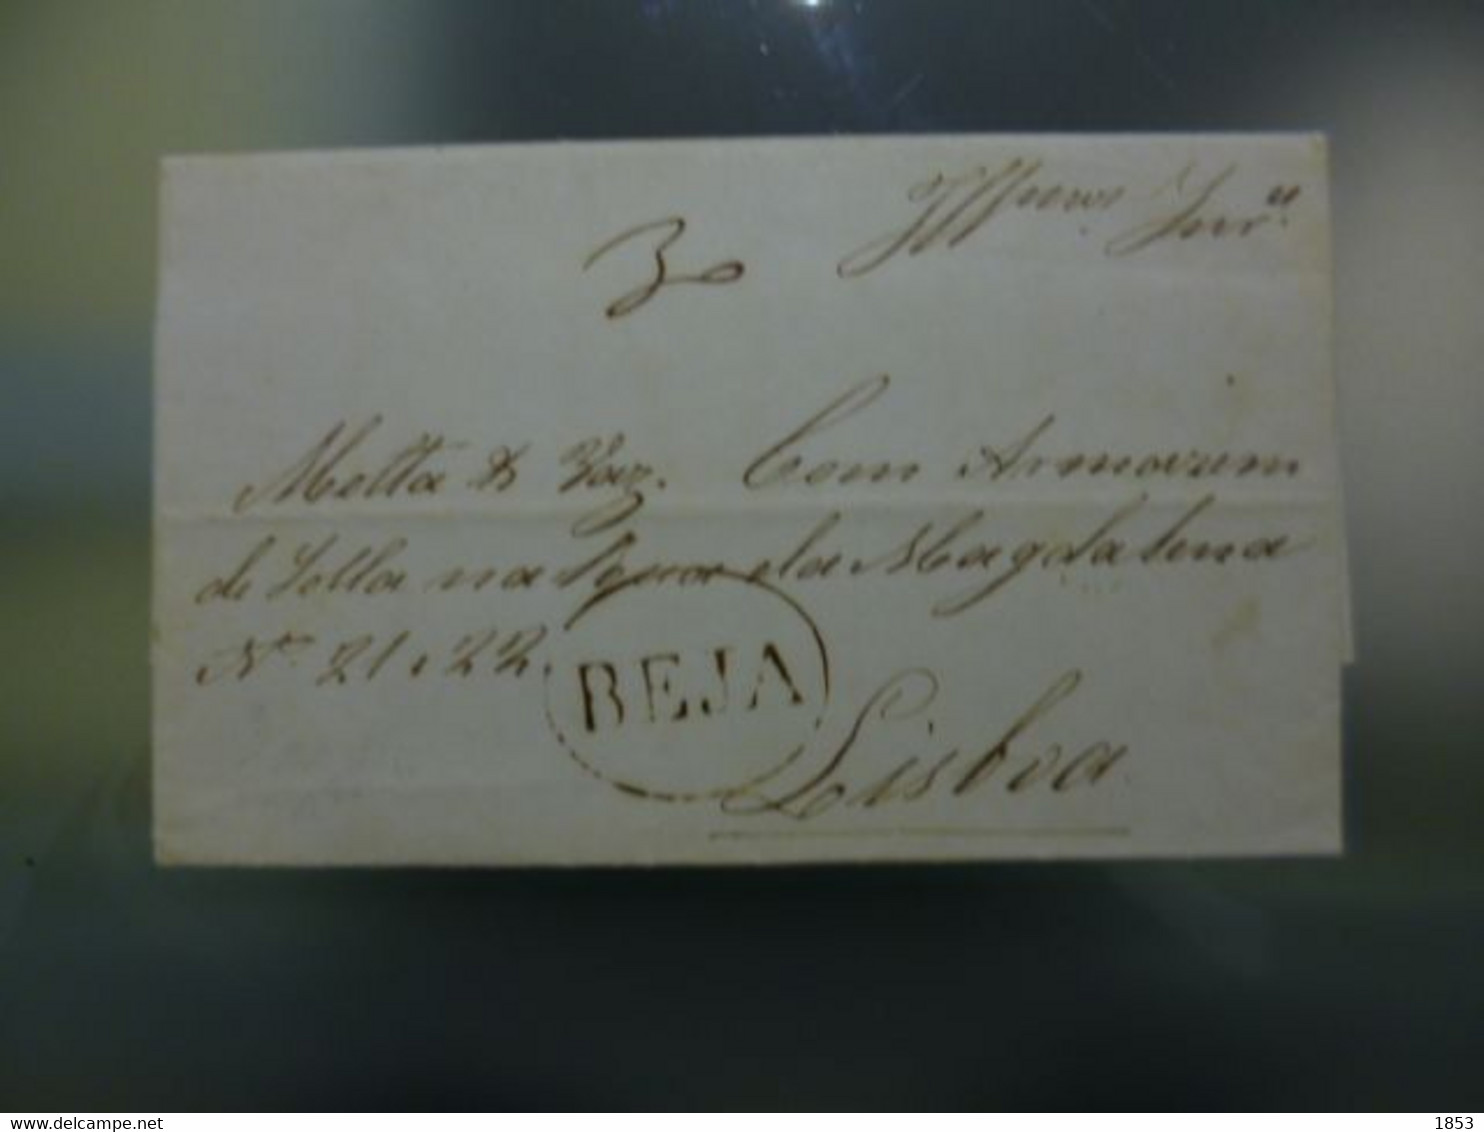 Ill.mos Snr.es
30
Motta & Vaz. Com Armazem
de Solla na Rua da Magdalena
Nos 21 e 22.
BEJA
Lisboa
delcampe.net
1853